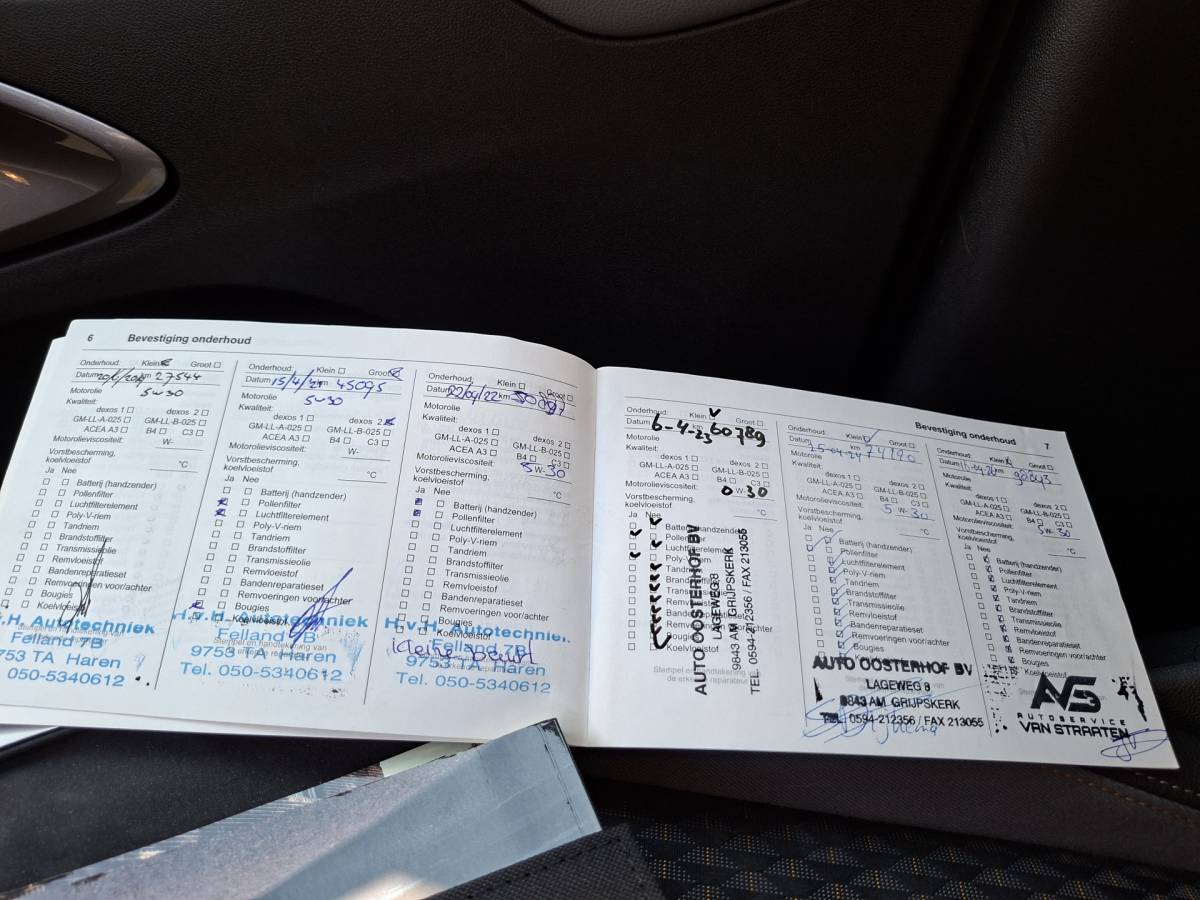 6 Bevestiging onderhoud
Onderhoud: Klein Groot
Datum km 27544
Motorolie 5w30
Kwaliteit:
dexos 1 dexos 2
GM-LL-A-025 GM-LL-B-025
ACEA A3 B4 C3
Motorolieviscositeit: W-
Vorstbescherming, koelvloeistof °C
Ja Nee
Batterij (handzender)
Pollenfilter
Luchtfilterelement
Poly-V-riem
Tandriem
Brandstoffilter
Transmissieolie
Remvloeistof
Bandenreparatieset
Remvoeringen voor/achter
Bougies
Koelvloeistof
H.v.H. Autotechniek
Felland 7B
9753 TA Haren
050-5340612
Onderhoud: Klein Groot
Datum 15/4/21 km 45095
Motorolie 5w30
Kwaliteit:
dexos 1 dexos 2
GM-LL-A-025 GM-LL-B-025
ACEA A3 B4 C3
Motorolieviscositeit: W-
Vorstbescherming, koelvloeistof °C
Ja Nee
Batterij (handzender)
Pollenfilter
Luchtfilterelement
Poly-V-riem
Tandriem
Brandstoffilter
Transmissieolie
Remvloeistof
Bandenreparatieset
Remvoeringen voor/achter
Bougies
Koelvloeistof
H.v.H. Autotechniek
Felland 7B
9753 TA Haren
Tel. 050-5340612
Onderhoud: Klein Groot
Datum 22/04/22 km
Motorolie
Kwaliteit:
dexos 1 dexos 2
GM-LL-A-025 GM-LL-B-025
ACEA A3 B4 C3
Motorolieviscositeit: 5 W-30
Vorstbescherming, koelvloeistof °C
Ja Nee
Batterij (handzender)
Pollenfilter
Luchtfilterelement
Poly-V-riem
Tandriem
Brandstoffilter
Transmissieolie
Remvloeistof
Bandenreparatieset
Remvoeringen voor/achter
Bougies
Koelvloeistof
H.v.H. Autotechniek
Felland 7B
kleine beurt
9753 TA Haren
Tel. 050-5340612
Bevestiging onderhoud 7
Onderhoud: Klein Groot
Datum 6-4-23 km 60789
Motorolie
Kwaliteit:
dexos 1 dexos 2
GM-LL-A-025 GM-LL-B-025
ACEA A3 B4 C3
Motorolieviscositeit: 0 W-30
Vorstbescherming, koelvloeistof °C
Ja Nee
Batterij (handzender)
Pollenfilter
Luchtfilterelement
Poly-V-riem
Tandriem
Brandstoffilter
Transmissieolie
Remvloeistof
Bandenreparatieset
Remvoeringen voor/achter
Bougies
Koelvloeistof
Stempel en handtekening van
de erkende reparateur
AUTO OOSTERHOF BV
LAGEWEG 8
9843 AM GRIJPSKERK
TEL. 0594-212356 / FAX 213055
Onderhoud: Klein Groot
Datum 25-04-24 km 74190
Motorolie
Kwaliteit:
dexos 1 dexos 2
GM-LL-A-025 GM-LL-B-025
ACEA A3 B4 C3
Motorolieviscositeit: 5 W-30
Vorstbescherming, koelvloeistof °C
Ja Nee
Batterij (handzender)
Pollenfilter
Luchtfilterelement
Poly-V-riem
Tandriem
Brandstoffilter
Transmissieolie
Remvloeistof
Bandenreparatieset
Remvoeringen voor/achter
Bougies
Koelvloeistof
AUTO OOSTERHOF BV
LAGEWEG 8
9843 AM GRIJPSKERK
TEL. 0594-212356 / FAX 213055
Onderhoud: Klein Groot
Datum km
Motorolie
Kwaliteit:
dexos 1 dexos 2
GM-LL-A-025 GM-LL-B-025
ACEA A3 B4 C3
Motorolieviscositeit: 5W 30
Vorstbescherming, koelvloeistof °C
Ja Nee
Batterij (handzender)
Pollenfilter
Luchtfilterelement
Poly-V-riem
Tandriem
Brandstoffilter
Transmissieolie
Remvloeistof
Bandenreparatieset
Remvoeringen voor/achter
Bougies
Koelvloeistof
AVS
AUTOSERVICE
VAN STRAATEN